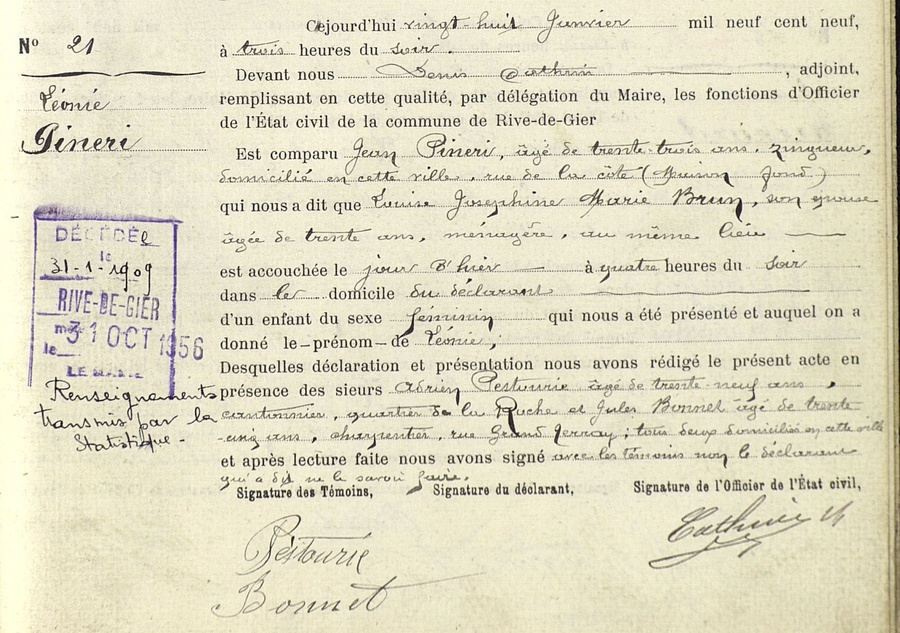 N° 21
Léonie
Pineri
Cejourd'hui vingt-huit Janvier mil neuf cent neuf,
à trois heures du soir.
Devant nous Denis Cathin, adjoint,
remplissant en cette qualité, par délégation du Maire, les fonctions d'Officier
de l'État civil de la commune de Rive-de-Gier
Est comparu Jean Pineri, âgé de trente-trois ans, zingueur,
domicilié en cette ville, rue de la côte (Maison Jond)
qui nous a dit que Louise Josephine Marie Brun, son épouse
âgée de trente ans, ménagère, au même lieu
est accouchée le jour d'hier à quatre heures du soir
dans le domicile du déclarant
d'un enfant du sexe féminin qui nous a été présenté et auquel on a
donné le prénom de Léonie,
Desquelles déclaration et présentation nous avons rédigé le présent acte en
présence des sieurs Adrien Pestourie âgé de trente-neuf ans,
cantonnier, quartier de la Roche et Jules Bonnet âgé de trente
-cinq ans, charpentier, rue Grand ; tous deux domiciliés en cette ville
et après lecture faite nous avons signé avec les témoins non le déclarant
qui a dit ne le savoir faire.
Signature des Témoins, Signature du déclarant, Signature de l'Officier de l'État civil,
Pestourie
Bonnet
DÉCÉDÉe
le
31-1-1909
RIVE-DE-GIER
le 31 OCT 1956
LE MAIRE
Renseignements
transmis par la
Statistique -